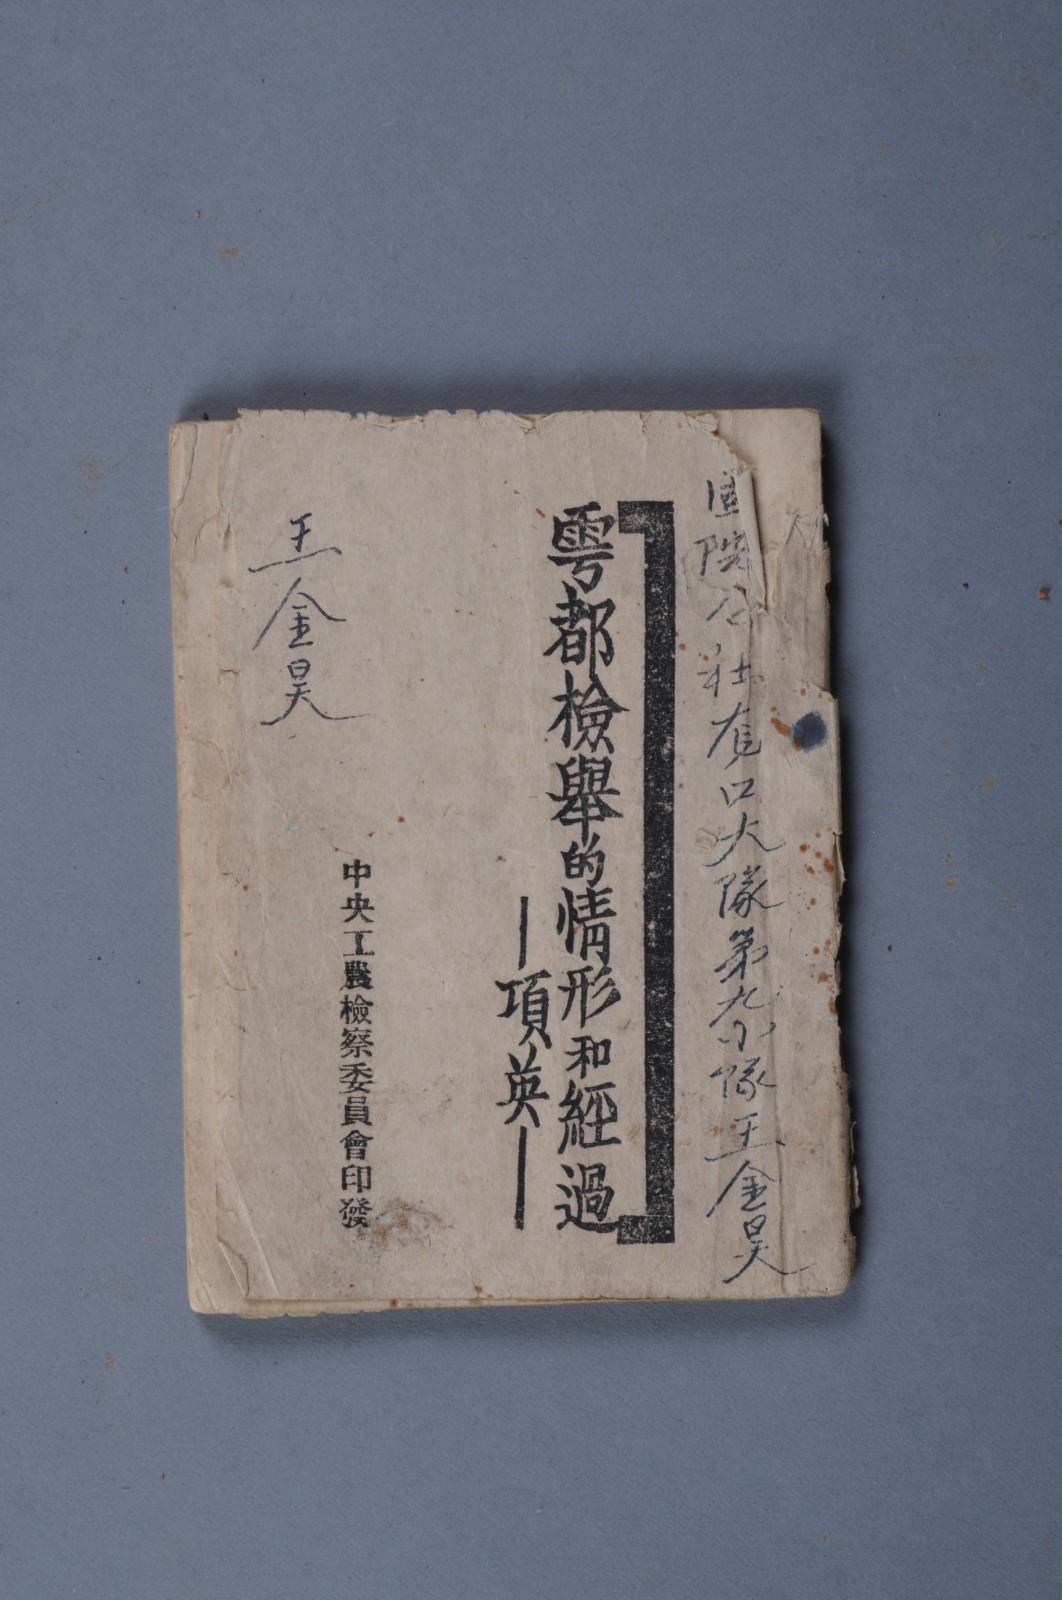 公社有口大隊第九小隊王金昊
雩都檢舉的情形和經過
—項英—
中央工農檢察委員會印發
王金昊